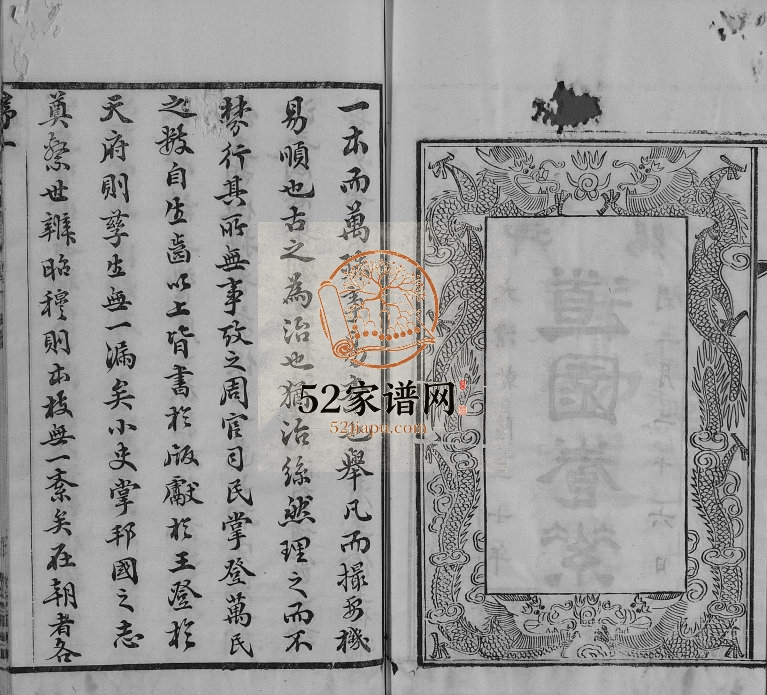 一本而萬殊事易也舉凡而撮要機
易順也古之為治也猶治絲然理之而不
棼行其所無事攷之周官司民掌登萬民
之數自生齒以上皆書於版獻於王登於
天府則孳生無一漏矣小史掌邦國之志
奠繫世辨昭穆則本枝無一紊矣在朝者各
序一
52家谱网
52jiapu.com